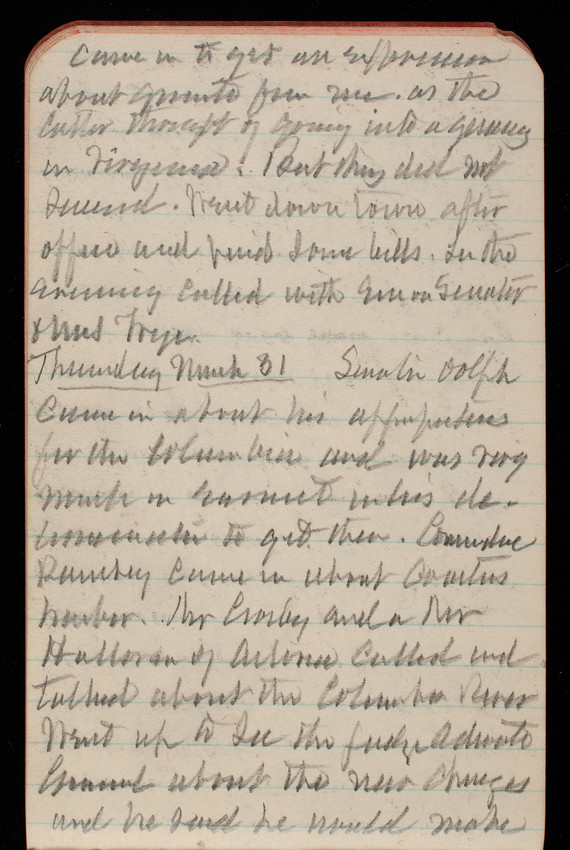 Came in to get an expression
about granite from me. as the
latter thought of going into a quarry
in Virginia. But they did not
succeed. Went down town after
office and paid some bills. In the
evening called with Em on Senator
& Mrs Frye.
Thursday March 31 Senator Dolph
came in about his appropriations
for the Columbia and was very
much in earnest in his de-
to get them. Comdre
Ramsey came in about
harbor. Mr Crosby and a Mr
Halloran of Astoria called and
talked about the Columbia River
Went up to see the Judge Advocate
General about the new charges
and he said he would make